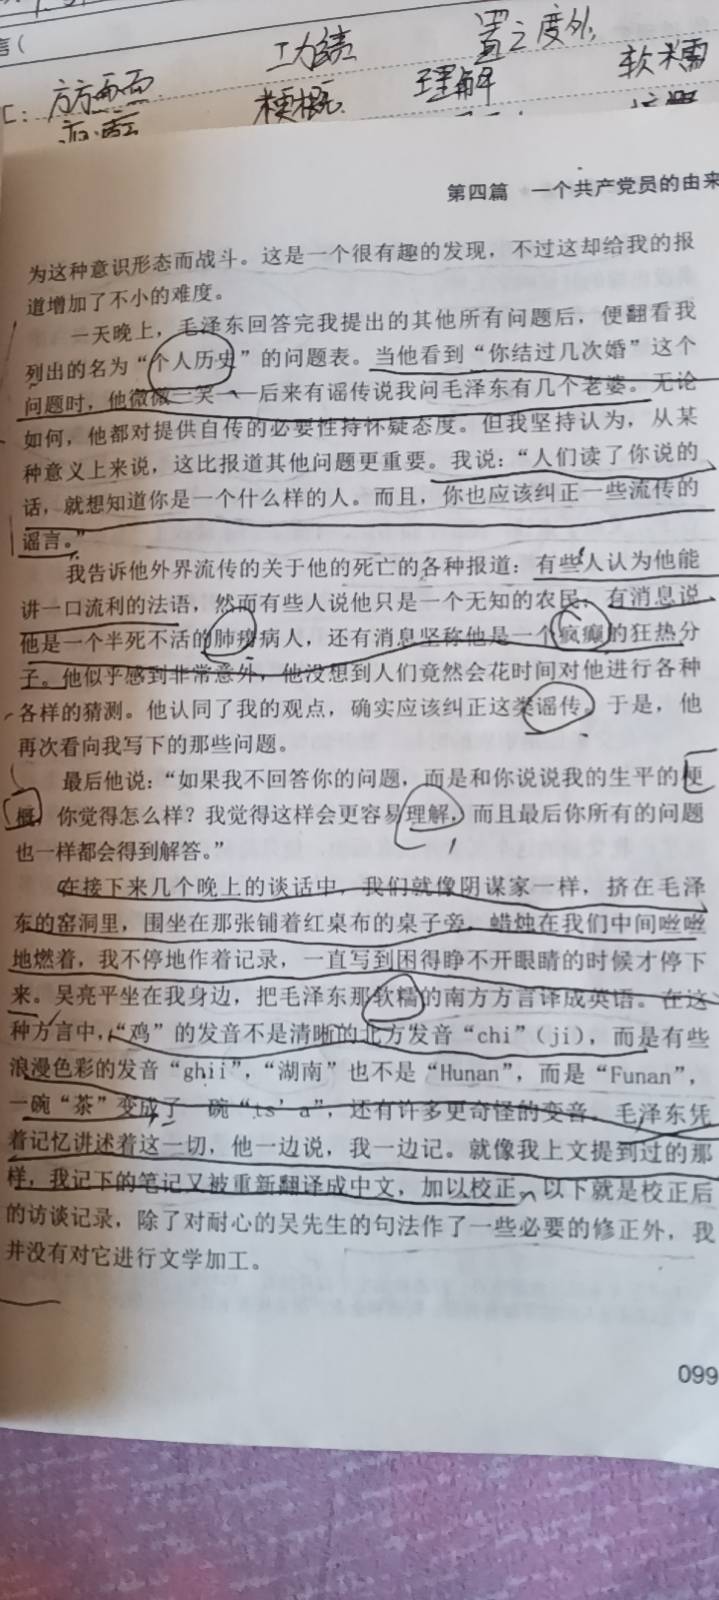 言(
工力绩
置之度外
软糯
C：方方面面
梗概
理解
第四篇 一个共产党员的由来
为这种意识形态而战斗。这是一个很有趣的发现，不过这却给我的报
道增加了不小的难度。
一天晚上，毛泽东回答完我提出的其他所有问题后，便翻看我
列出的名为“个人历史”的问题表。当他看到“你结过几次婚”这个
问题时，他微微一笑——后来有谣传说我问毛泽东有几个老婆。无论
如何，他都对提供自传的必要性持怀疑态度。但我坚持认为，从某
种意义上来说，这比报道其他问题更重要。我说：“人们读了你说的
话，就想知道你是一个什么样的人。而且，你也应该纠正一些流传的
谣言。”
我告诉他外界流传的关于他的死亡的各种报道：有些人认为他能
讲一口流利的法语，然而有些人说他只是一个无知的农民；有消息说
他是一个半死不活的肺痨病人，还有消息坚称他是一个疯癫的狂热分
子。他似乎感到非常意外，他没想到人们竟然会花时间对他进行各种
各样的猜测。他认同了我的观点，确实应该纠正这类谣传。于是，他
再次看向我写下的那些问题。
最后他说：“如果我不回答你的问题，而是和你说说我的生平的梗
概，你觉得怎么样？我觉得这样会更容易理解，而且最后你所有的问题
也一样都会得到解答。”
在接下来几个晚上的谈话中，我们就像阴谋家一样，挤在毛泽
东的窑洞里，围坐在那张铺着红桌布的桌子旁，蜡烛在我们中间咝咝
地燃着，我不停地作着记录，一直写到困得睁不开眼睛的时候才停下
来。吴亮平坐在我身边，把毛泽东那软糯的南方方言译成英语。在这
种方言中，“鸡”的发音不是清晰的北方发音“chi”（ji），而是有些
浪漫色彩的发音“ghii”，“湖南”也不是“Hunan”，而是“Funan”，
一碗“茶”变成了一碗“ts’a”，还有许多更奇怪的变音。毛泽东凭
着记忆讲述着这一切，他一边说，我一边记。就像我上文提到过的那
样，我记下的笔记又被重新翻译成中文，加以校正。以下就是校正后
的访谈记录，除了对耐心的吴先生的句法作了一些必要的修正外，我
并没有对它进行文学加工。
099